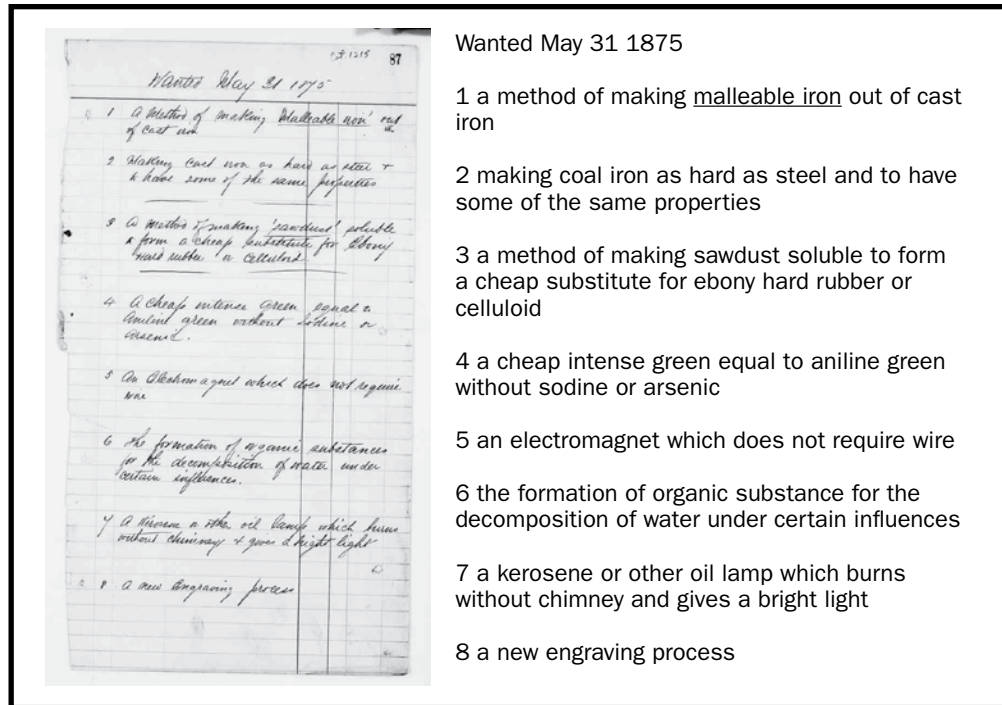 87
Wanted May 31 1875
1 A Method of making 'Malleable iron' out
of cast iron
2 Making cast iron as hard as steel &
to have some of the same properties
3 A method of making 'sawdust' soluble
& form a cheap substitute for Ebony
Hard rubber or celluloid
4 A cheap intense green equal to
Aniline green without Iodine or
arsenic.
5 An Electromagnet which does not require
wire
6 The formation of organic substances
for the decomposition of water under
certain influences.
7 A Kerosene or other oil lamp which burns
without chimney & gives a bright light
8 A new Engraving process
Wanted May 31 1875
1 a method of making malleable iron out of cast
iron
2 making coal iron as hard as steel and to have
some of the same properties
3 a method of making sawdust soluble to form
a cheap substitute for ebony hard rubber or
celluloid
4 a cheap intense green equal to aniline green
without sodine or arsenic
5 an electromagnet which does not require wire
6 the formation of organic substance for the
decomposition of water under certain influences
7 a kerosene or other oil lamp which burns
without chimney and gives a bright light
8 a new engraving process